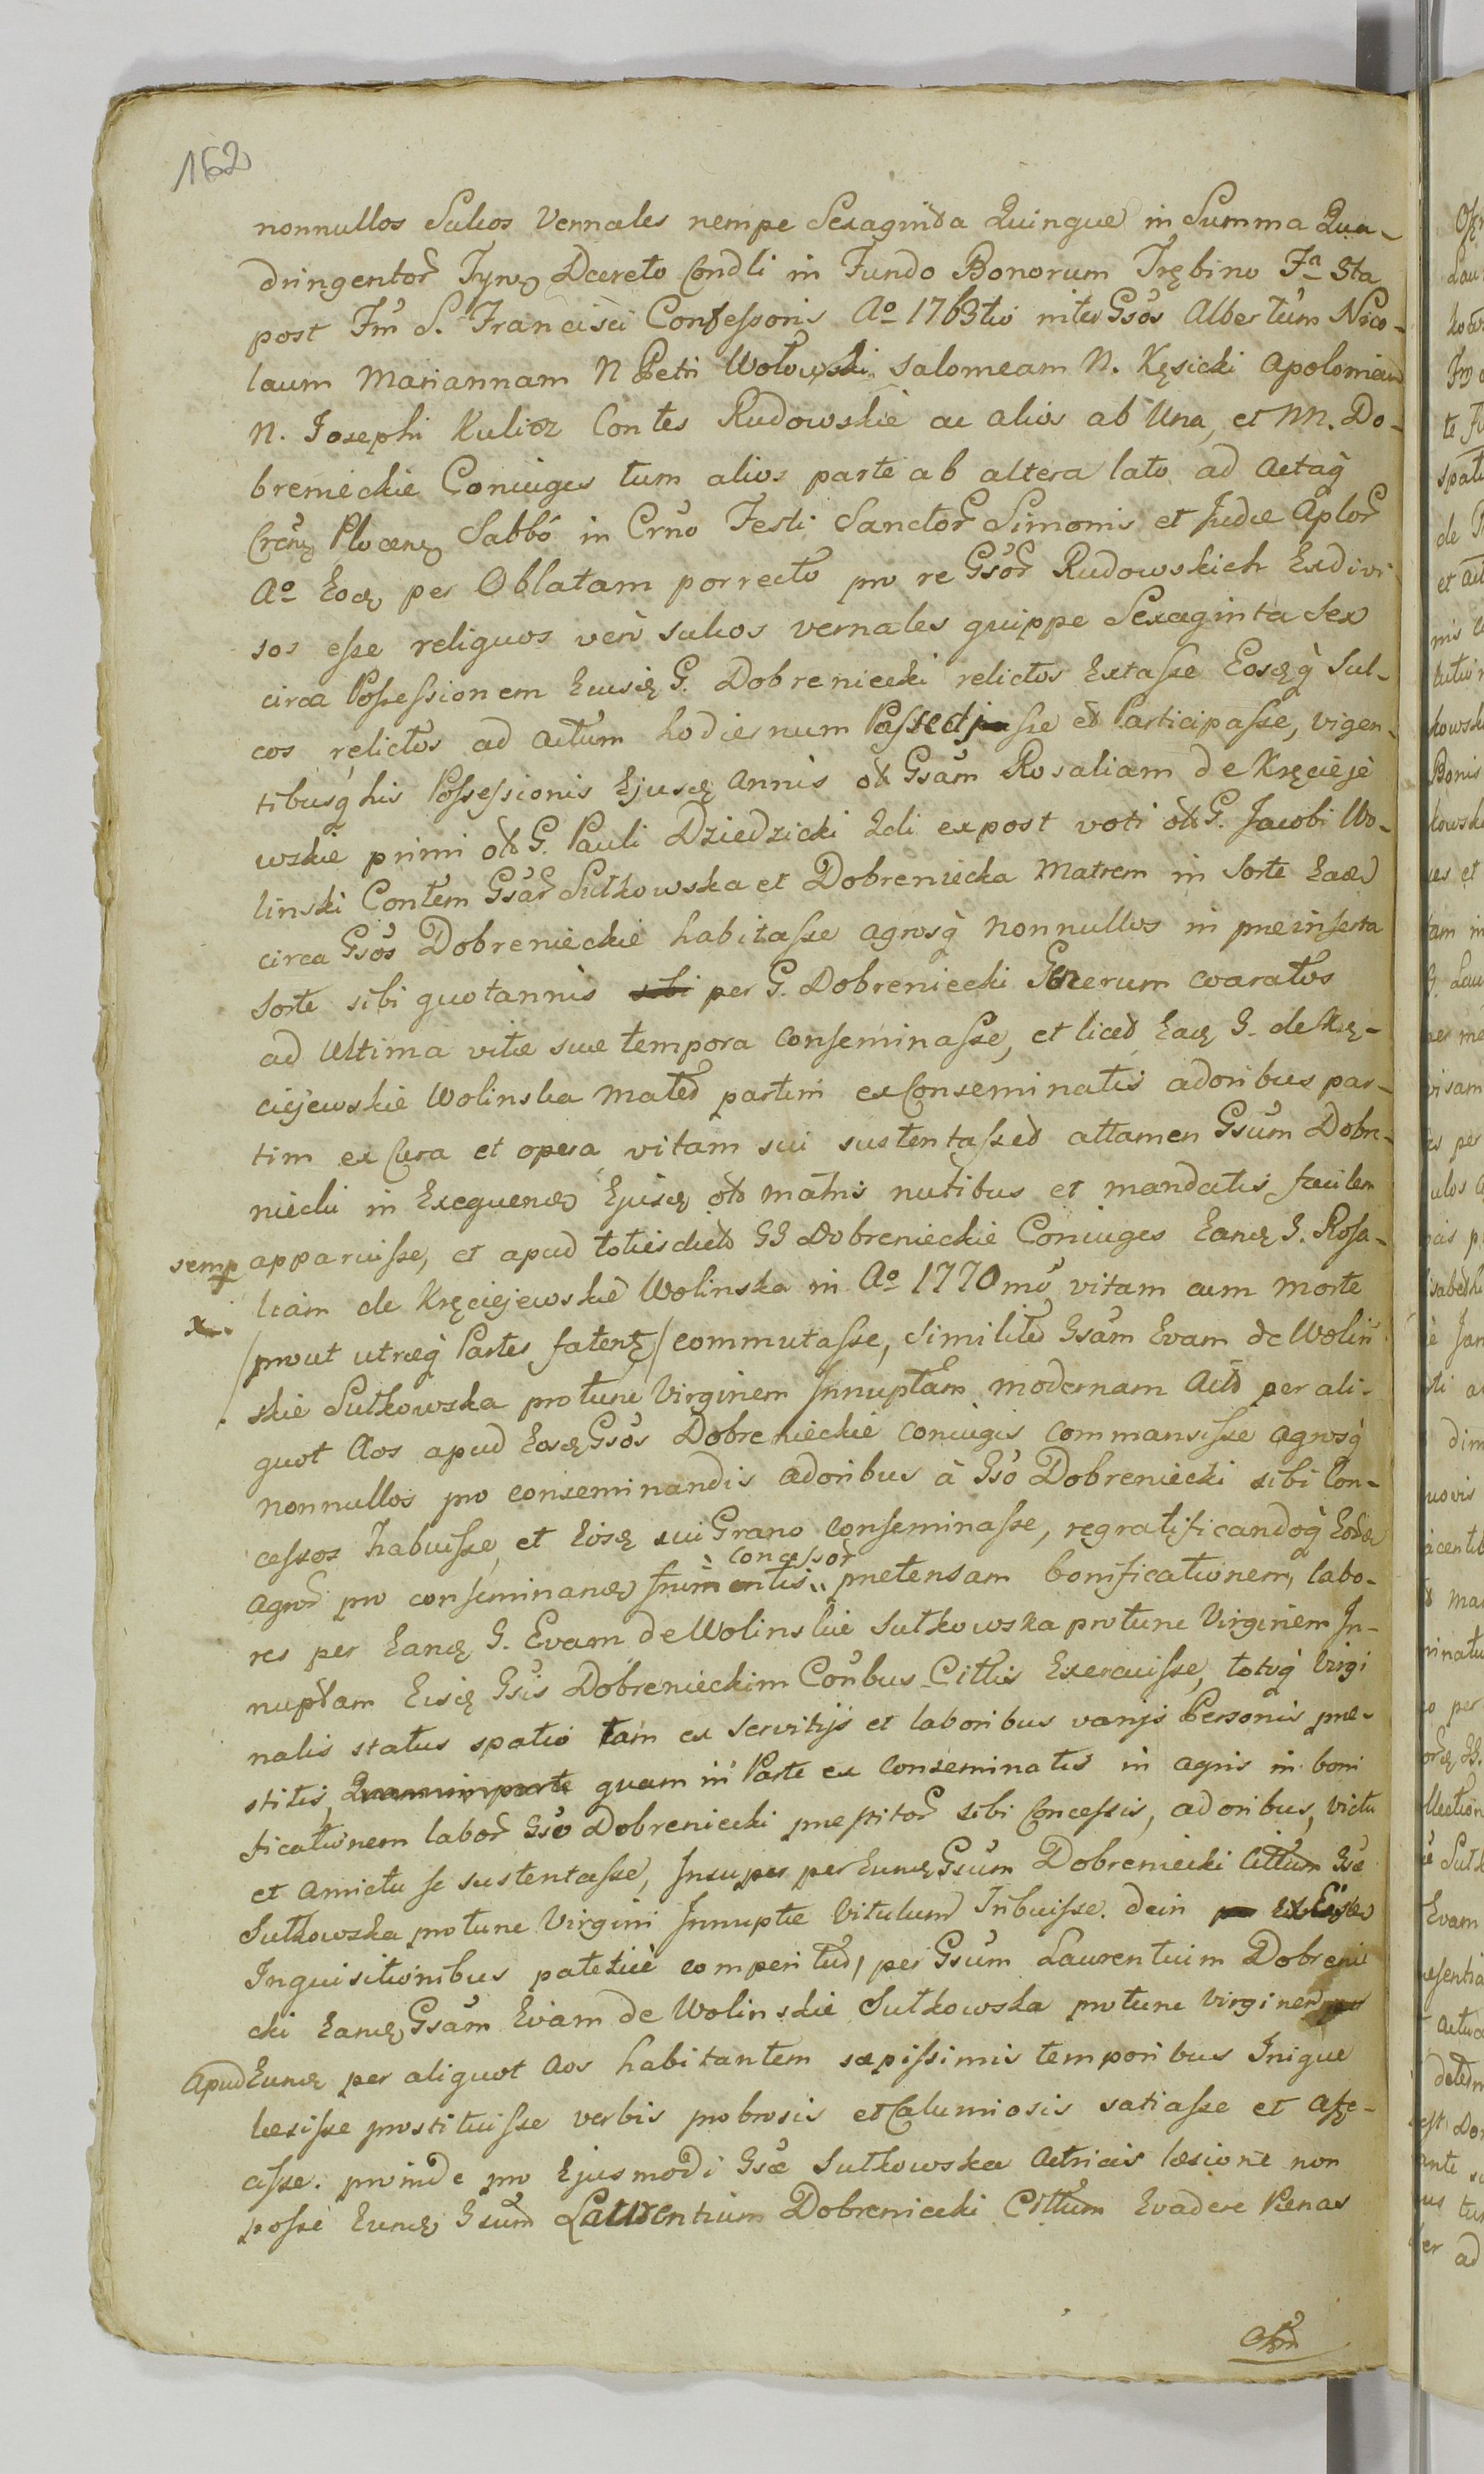 162
nonnullos Sulcos Vernales nempe Sexaginta Quinque in Summa Qua-
dringentor Tynꝫ Dcreto Condli in Fundo Bonorum Trębino Fa 3tia
post Fm S. Francisci Confessoris Ao 1763tio inter Gsos Albertum Nico-
laum Mariannam N Petri Wołowski Salomeam N. Kęsicki Apoloniam
N. Josephi Kulicz Contes Rudowskie ac alios ab Una, et M. Do-
brenieckie Coniuges tum alios parte ab altera lato ad Actaq
Crensꝫ Plocenꝫ Sabbo in Crno Festi Sanctor Simonis et Judæ Aplor
Ao Eodꝫ per Oblatam porrecto pro re Gsor Rudowskich Exdivi
sos esse reliquos vero sulcos vernales quippe Sexaginta Sex
circa Possessionem Eiusdꝫ G. Dobreniecki relictos Extasse Eosdꝫq Sul-
cos relictos ad actum hodiernum Possedisse et Participasse, vigen-
tibusq his Possessionis Ejusdꝫ annis ott Gsam Rosaliam de Kręcieje
wskie primi ott G. Pauli Dziedzicki 2di expost voti ott G. Jacobi Wo-
linski Contem Gsar Sutkowska et Dobreniecka Matrem in Sorte Eadꝫ
circa Gsos Dobrenieckie habitasse agrosq nonnullos in præinserta
Sorte sibi quotannis sibi per G. Dobreniecki Generum coaratos
ad Ultima vitæ suæ tempora conseminasse, et licet Eadꝫ G. de Krę-
ciejewskie Wolinska Mater partim ex Conseminatis adoribus par-
tim ex Cura et opera vitam sui sustentasset attamen Gsum Dobre-
niecki in Exequendꝫ Ejusdꝫ ott matris nutibus et mandatis facilem
semp apparuisse, et apud toties dict GG Dobrenieckie Coniuges Eandꝫ G. Rosa-
x. liam de Kręciejewskie Wolinska in Ao 1770mo vitam cum morte
/prout utræq Partes fatentꝫ/ commutasse, Similiter Gsam Evam de Wolin
skie Sutkowska protunc Virginem Innuptam modernam Act per ali-
quot Aos apud Eosdꝫ Gsos Dobrenieckie coniuges commansisse agrosq
nonnullos pro conseminandis adoribus à Gso Dobreniecki sibi Con-
cessos habuisse, et Eosdꝫ sui Grano conseminasse, regratificandoq Eordꝫ
concessor
agror pro conseminandꝫ frumentis pretensam bonificationem, labo-
res per Eandꝫ G. Evam de Wolinskie Sutkowska protunc Virginem In-
nuptam Eisdꝫ Gsis Dobrenieckim Conbus Cittis Exercuisse, totoq Virgi
nalis status spatio tam ex Servitijs et laboribus varijs Personis præ-
stitis, quam in Parte ex conseminatis in agris in boni
ficationem labor Gso Dobreniecki præstitor sibi Concessis, adoribus, victu
et Amictu se sustentasse, Insuper per Eundꝫ Gsum Dobreniecki Cittum Gsæ
Sutkowska protunc Virgini Innuptæ Vitulum Tribuisse. dein ex Eisdꝫ
Inquisitionibus patetice comperitur, per Gsum Laurentium Dobrenie
cki Eandꝫ Gsam Evam de Wolinskie Sutkowska protunc Virginem
Apud Eundꝫ per aliquot Aos habitantem sæpissimis temporibus Inique
læsisse prostituisse verbis probrosis et Calumiosis satiasse et affe-
cisse. proinde pro Ejusmodi Gsæ Sutkowska Actricis læsione non
posse Eundꝫ Gsum Laurentium Dobreniecki Cittum Evadere Pænas